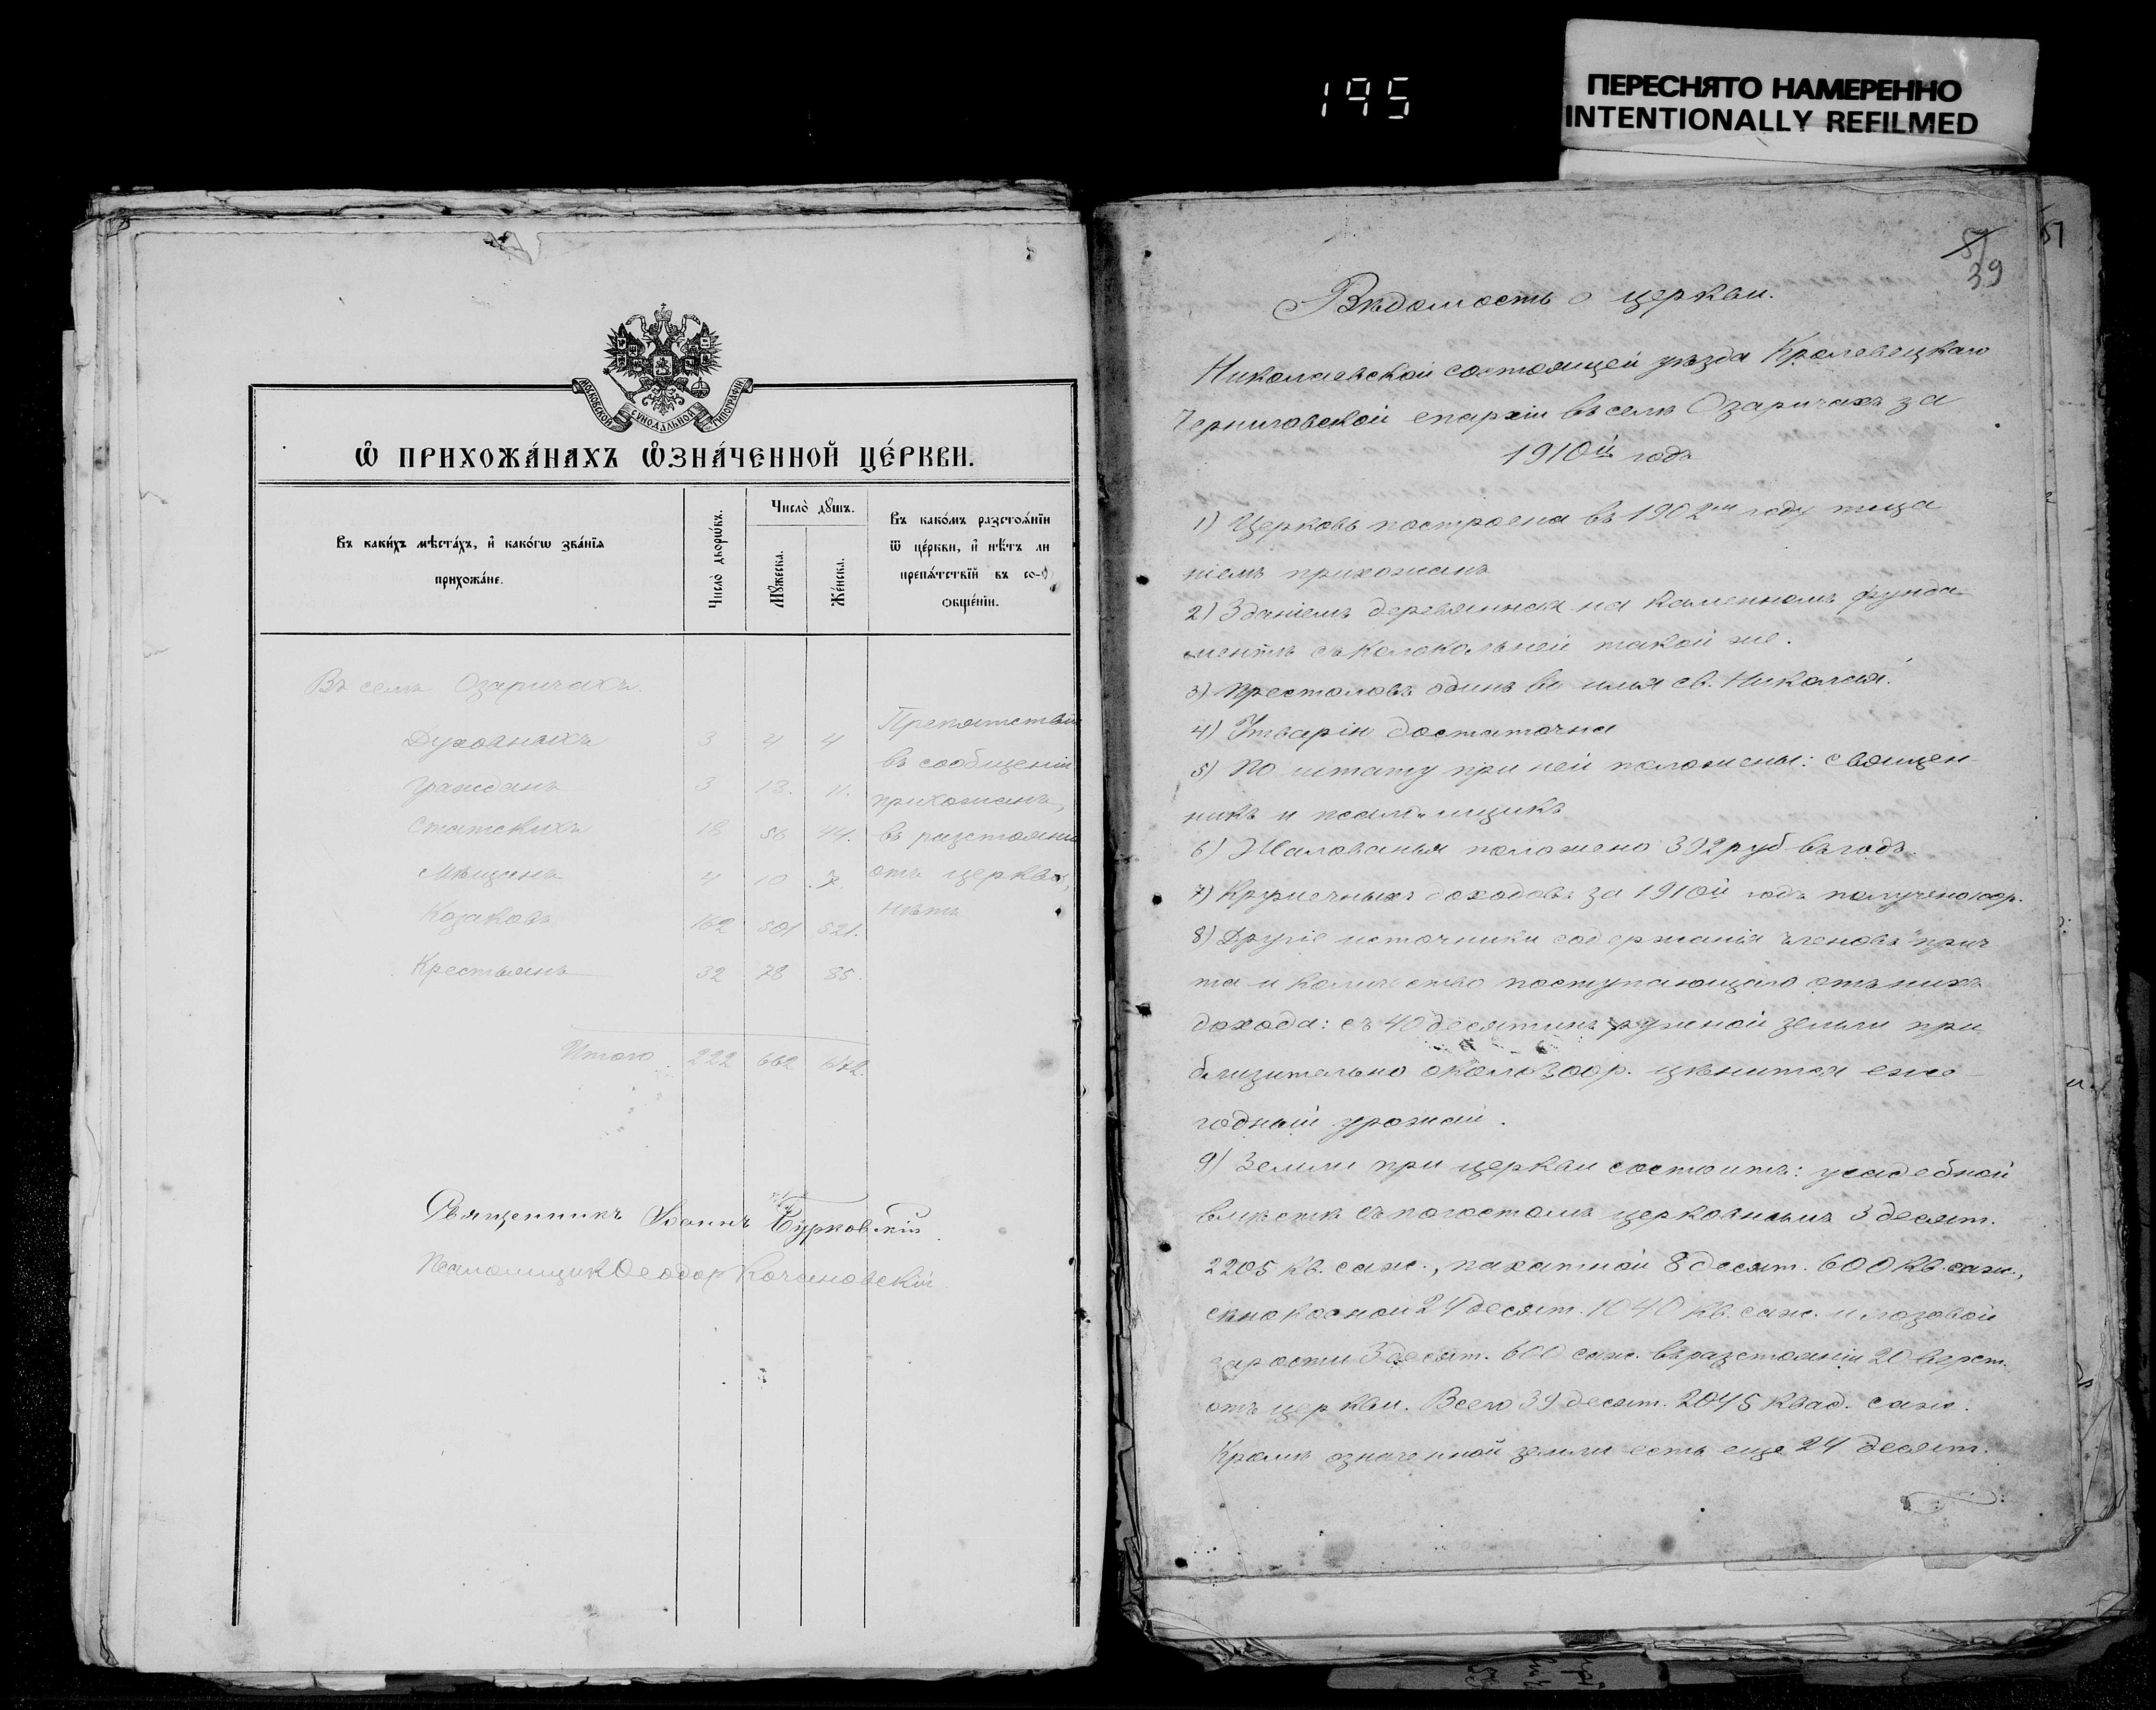 195
ПЕРЕСНЯТО НАМЕРЕННО
INTENTIONALLY REFILMED
МОСКОВСКОЙ СѴНОДАЛЬНОЙ ТИПОГРАФІИ
Ѽ ПРИХОЖА́НАХЪ Ѡ҆ЗНА́ЧЕННОЙ ЦЕ́РКВИ.
Въ каки́хъ мѣста́хъ, и҆ како́гѡ зва́нїѧ
прихожа́не.
Число̀ дворѡ́въ.
Число̀ дꙋ́шъ.
Мꙋ́жеска.
Же́нска.
Въ како́мъ разстоѧ́нїи
ѿ це́ркви, и҆ нѣ́тъ ли
препѧ́тствїй въ со-
ѻбще́нїи.
Въ селѣ Озаричахъ.
Духовныхъ 3 4 4
Гражданъ 3 13. 11.
Статскихъ 18 56 44.
Мѣщанъ 4 10 7.
Козаковъ 162 501 521.
Крестьянъ 32 78 85.
Итого 222 662 672.
Препятствій
въ сообщеніи
прихожанъ,
въ разстояніи
отъ церкви,
нѣтъ.
Священникъ Іоаннъ Бурковскій
Псаломщикъ Ѳеодоръ Кочановскій.
51
39
51
Вѣдомость о церкви.
Николаевской состоящей уѣзда Кролевецкаго
Черниговской епархіи въ селѣ Озаричахъ за
1910й годъ
1) Церковь построена въ 1902мъ году тща
ніемъ прихожанъ
2) Зданіемъ деревянная на каменномъ фунда-
ментѣ съ колокольней такой же.
3) Престоловъ одинъ во имя св. Николая.
4) Утварію достаточна
5) По штату при ней положены: священ-
никъ и псаломщикъ
6) Жалованья положено 392 руб въ годъ.
7) Кружечныхъ доходовъ за 1910й годъ получено р.
8) Другіе источники содержанія членовъ прич
та и количество поступающаго отъ нихъ
дохода: съ 40 десятинъ ружной земли при
близительно около 300 р. цѣнится еже-
годный урожай.
9) Земли при церкви состоитъ: усадебной
вмѣстѣ съ погостомъ церковнымъ 3 десят.
2205 кв. саж., пахатной 8 десят. 600 кв. саж.,
сѣнокосной 24 десят. 1040 кв. саж. и лозовой
зарости 3 десят. 600 саж. въ разстояніи 20 верст.
отъ церкви. Всего 39 десят. 2045 квад. саж.
Кромѣ означенной земли есть еще 24 десят.